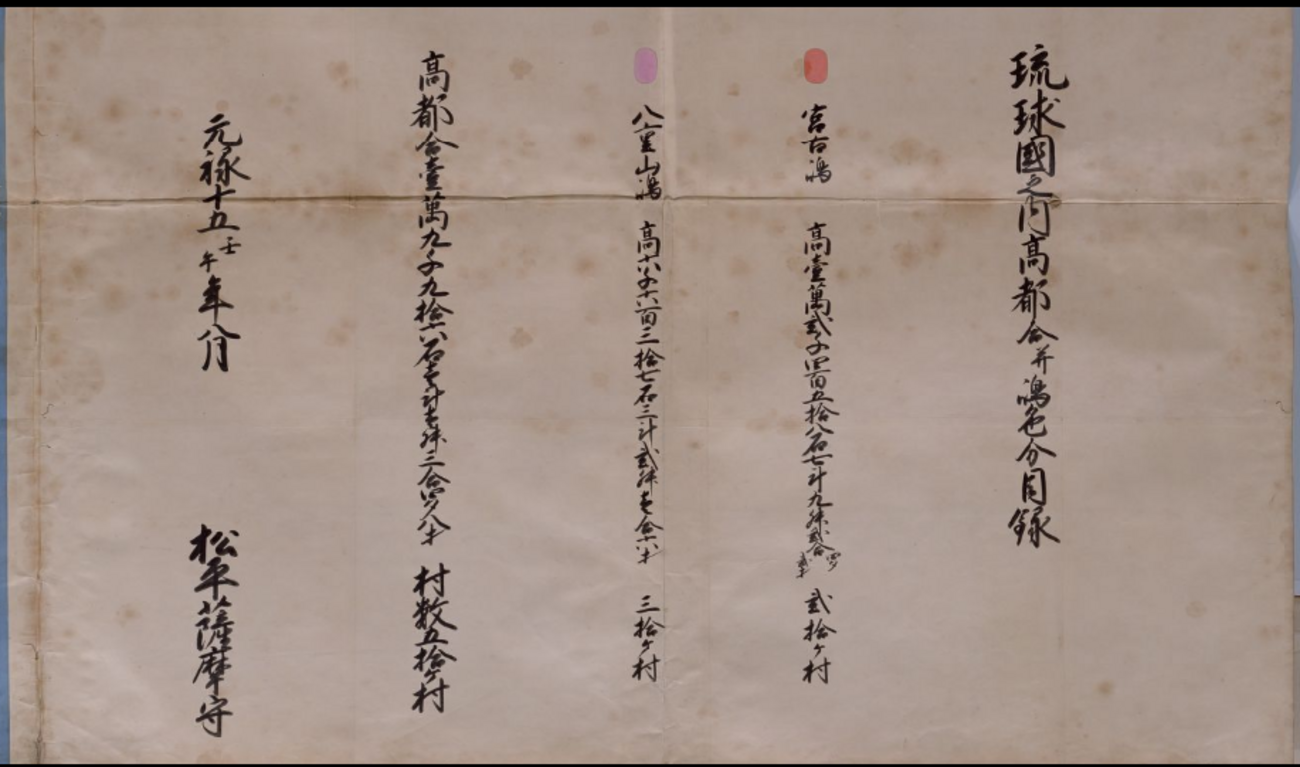 琉球國之内高都合并嶋色分目録
宮古嶋 高壹萬貳千四百五拾八石七斗九舛貳合四夕貳才 貳拾ヶ村
八重山嶋 高六千六百三拾七石三斗貳舛壱合六才 三拾ヶ村
高都合壹萬九千九拾六石壱斗壱舛三合四夕八才 村数五拾ヶ村
元禄十五壬午年八月 松平薩摩守